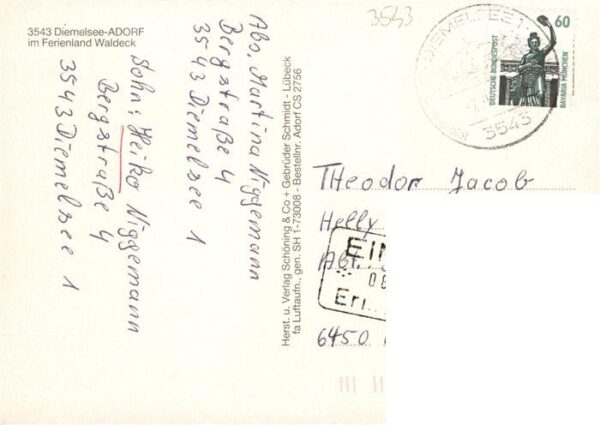 3543 Diemelsee-ADORF
im Ferienland Waldeck
Abs. Martina Niggemann
Bergstraße 4
3543 Diemelsee 1
Sohn: Heiko Niggemann
Bergstraße 4
3543 Diemelsee 1
Herst. u. Verlag Schöning & Co + Gebrüder Schmidt - Lübeck
fa Luftaufn., gen. SH 1-73008 - Bestellnr. Adorf CS 2756
3543
DIEMELSEE 1
3543
60
DEUTSCHE BUNDESPOST
BAVARIA MÜNCHEN
Theodor Jacob
Helly
Abt.
6450
EIN
Erl.